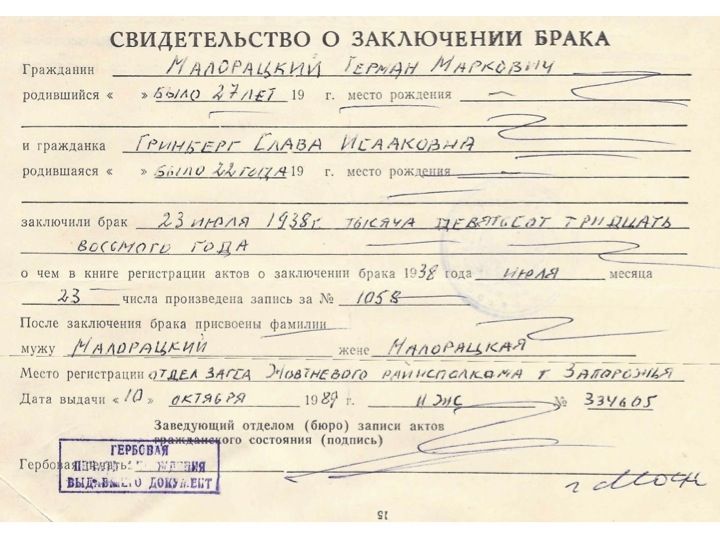 СВИДЕТЕЛЬСТВО О ЗАКЛЮЧЕНИИ БРАКА
Гражданин Малорацкий Герман Маркович
родившийся « » было 27 лет 19 г. место рождения —
и гражданка Гринберг Слава Исааковна
родившаяся « » было 22 года 19 г. место рождения —
заключили брак 23 июля 1938г. тысяча девятьсот тридцать
восьмого года
о чем в книге регистрации актов о заключении брака 1938 года июля месяца
23 числа произведена запись за № 1058
После заключения брака присвоены фамилии
мужу Малорацкий жене Малорацкая
Место регистрации отдел загса Жовтневого райисполкома г Запорожья
Дата выдачи «10» октября 1989 г. II ЖС № 334605
Заведующий отделом (бюро) записи актов
гражданского состояния (подпись)
Гербовая печать
ГЕРБОВАЯ
ВЫДАВШЕГО ДОКУМЕНТ
15